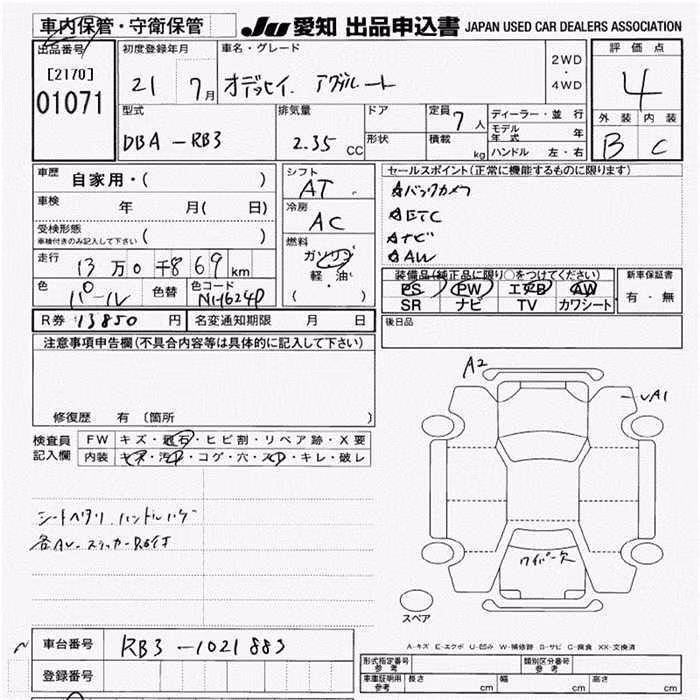 車内保管・守衛保管 JU 愛知 出品申込書 JAPAN USED CAR DEALERS ASSOCIATION
出品番号 初度登録年月 車名・グレード 2WD・4WD 評価点
[2170] 21 7月 オデッセイ. アブソルート 4
01071
型式 排気量 ドア 定員 7人 ディーラー・並行 外装 内装
DBA-RB3 2.35 CC 形状 積載 kg モデル年式 年 B C
ハンドル 左・右
車歴 自家用・( ) シフト AT セールスポイント(正常に機能するものに限ります)
車検 年 月( 日) 冷房 AC ☆バックカメラ
受検形態 ( ) ☆ETC
車検付きのみ記入して下さい 燃料 ☆ナビ
走行 13万0千869km ガソリン ☆AW
軽・油 装備品(純正品に限り○をつけてください) 新車保証書
色 パール 色替 色コード NH624P ( ) PS PW エアB AW 有・無
SR ナビ TV カワシート
R券 13850 円 名変通知期限 月 日 後日品
注意事項申告欄(不具合内容等は具体的に記入して下さい)
A2
A1
修復歴 有 〔箇所 〕
検査員 FW キズ・飛石・ヒビ割・リペア跡・X要
記入欄 内装 キズ・汚れ・コゲ・穴・スレ・キレ・破レ
シートヘタリ. ハンドルハゲ
ワイパー欠
スペア
A-キズ E-エクボ U-凹み W-補修跡 S-サビ C-腐食 XX-交換済
車台番号 RB3-1021883
登録番号
形式指定番号 参考 類別区分番号 参考
車庫証明用 参考 長さ cm 幅 cm 高さ cm